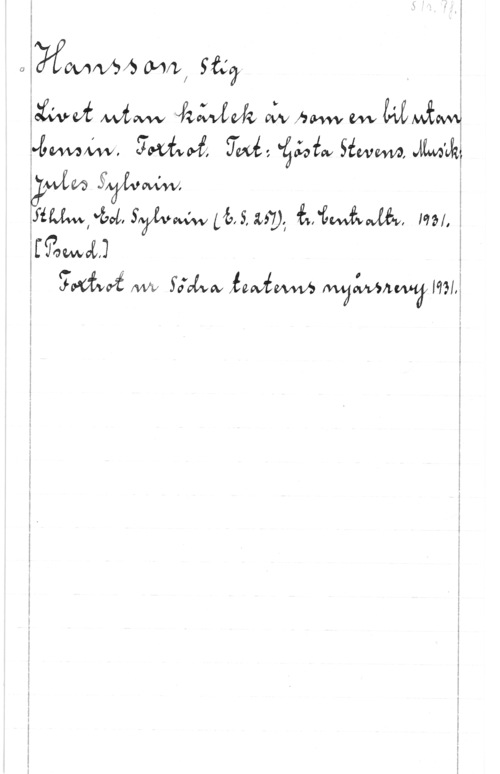 Str. 78.
Hansson, Stig
Livet utan kärlek är som en bil utan
bensin. Foxtrot. Text: Gösta Stevens. Musik:
Jules Sylvain.
Sthlm, Ed. Sylvain (E. S. 257); tr. Centraltr. 1931.
[Pseud.]
Foxtrot ur Södra teaterns nyårsrevy 1931.